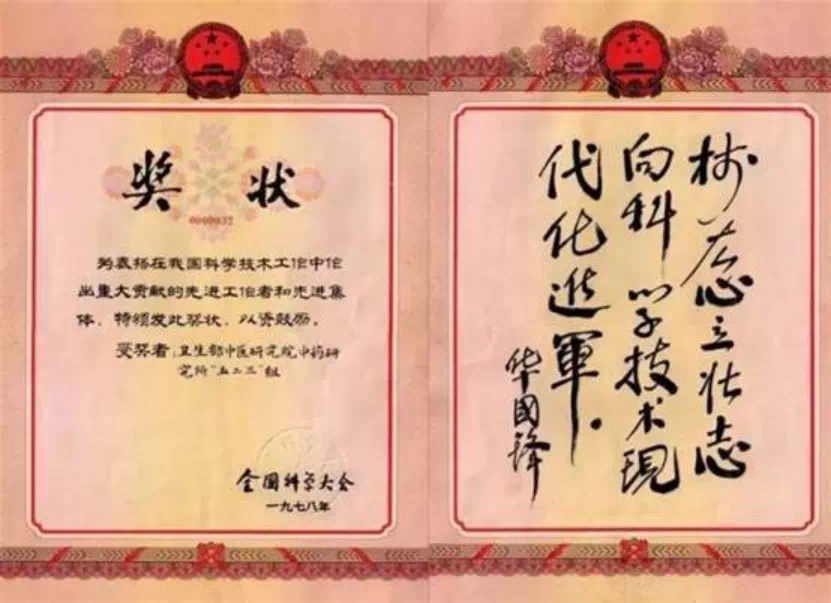 奖状
0000032
为表扬在我国科学技术工作中作
出重大贡献的先进工作者和先进集
体，特颁发此奖状，以资鼓励。
受奖者：卫生部中医研究院中药研
究所“五二三”组
全国科学大会
一九七八年
树雄心立壮志
向科学技术现
代化进軍。
华國锋